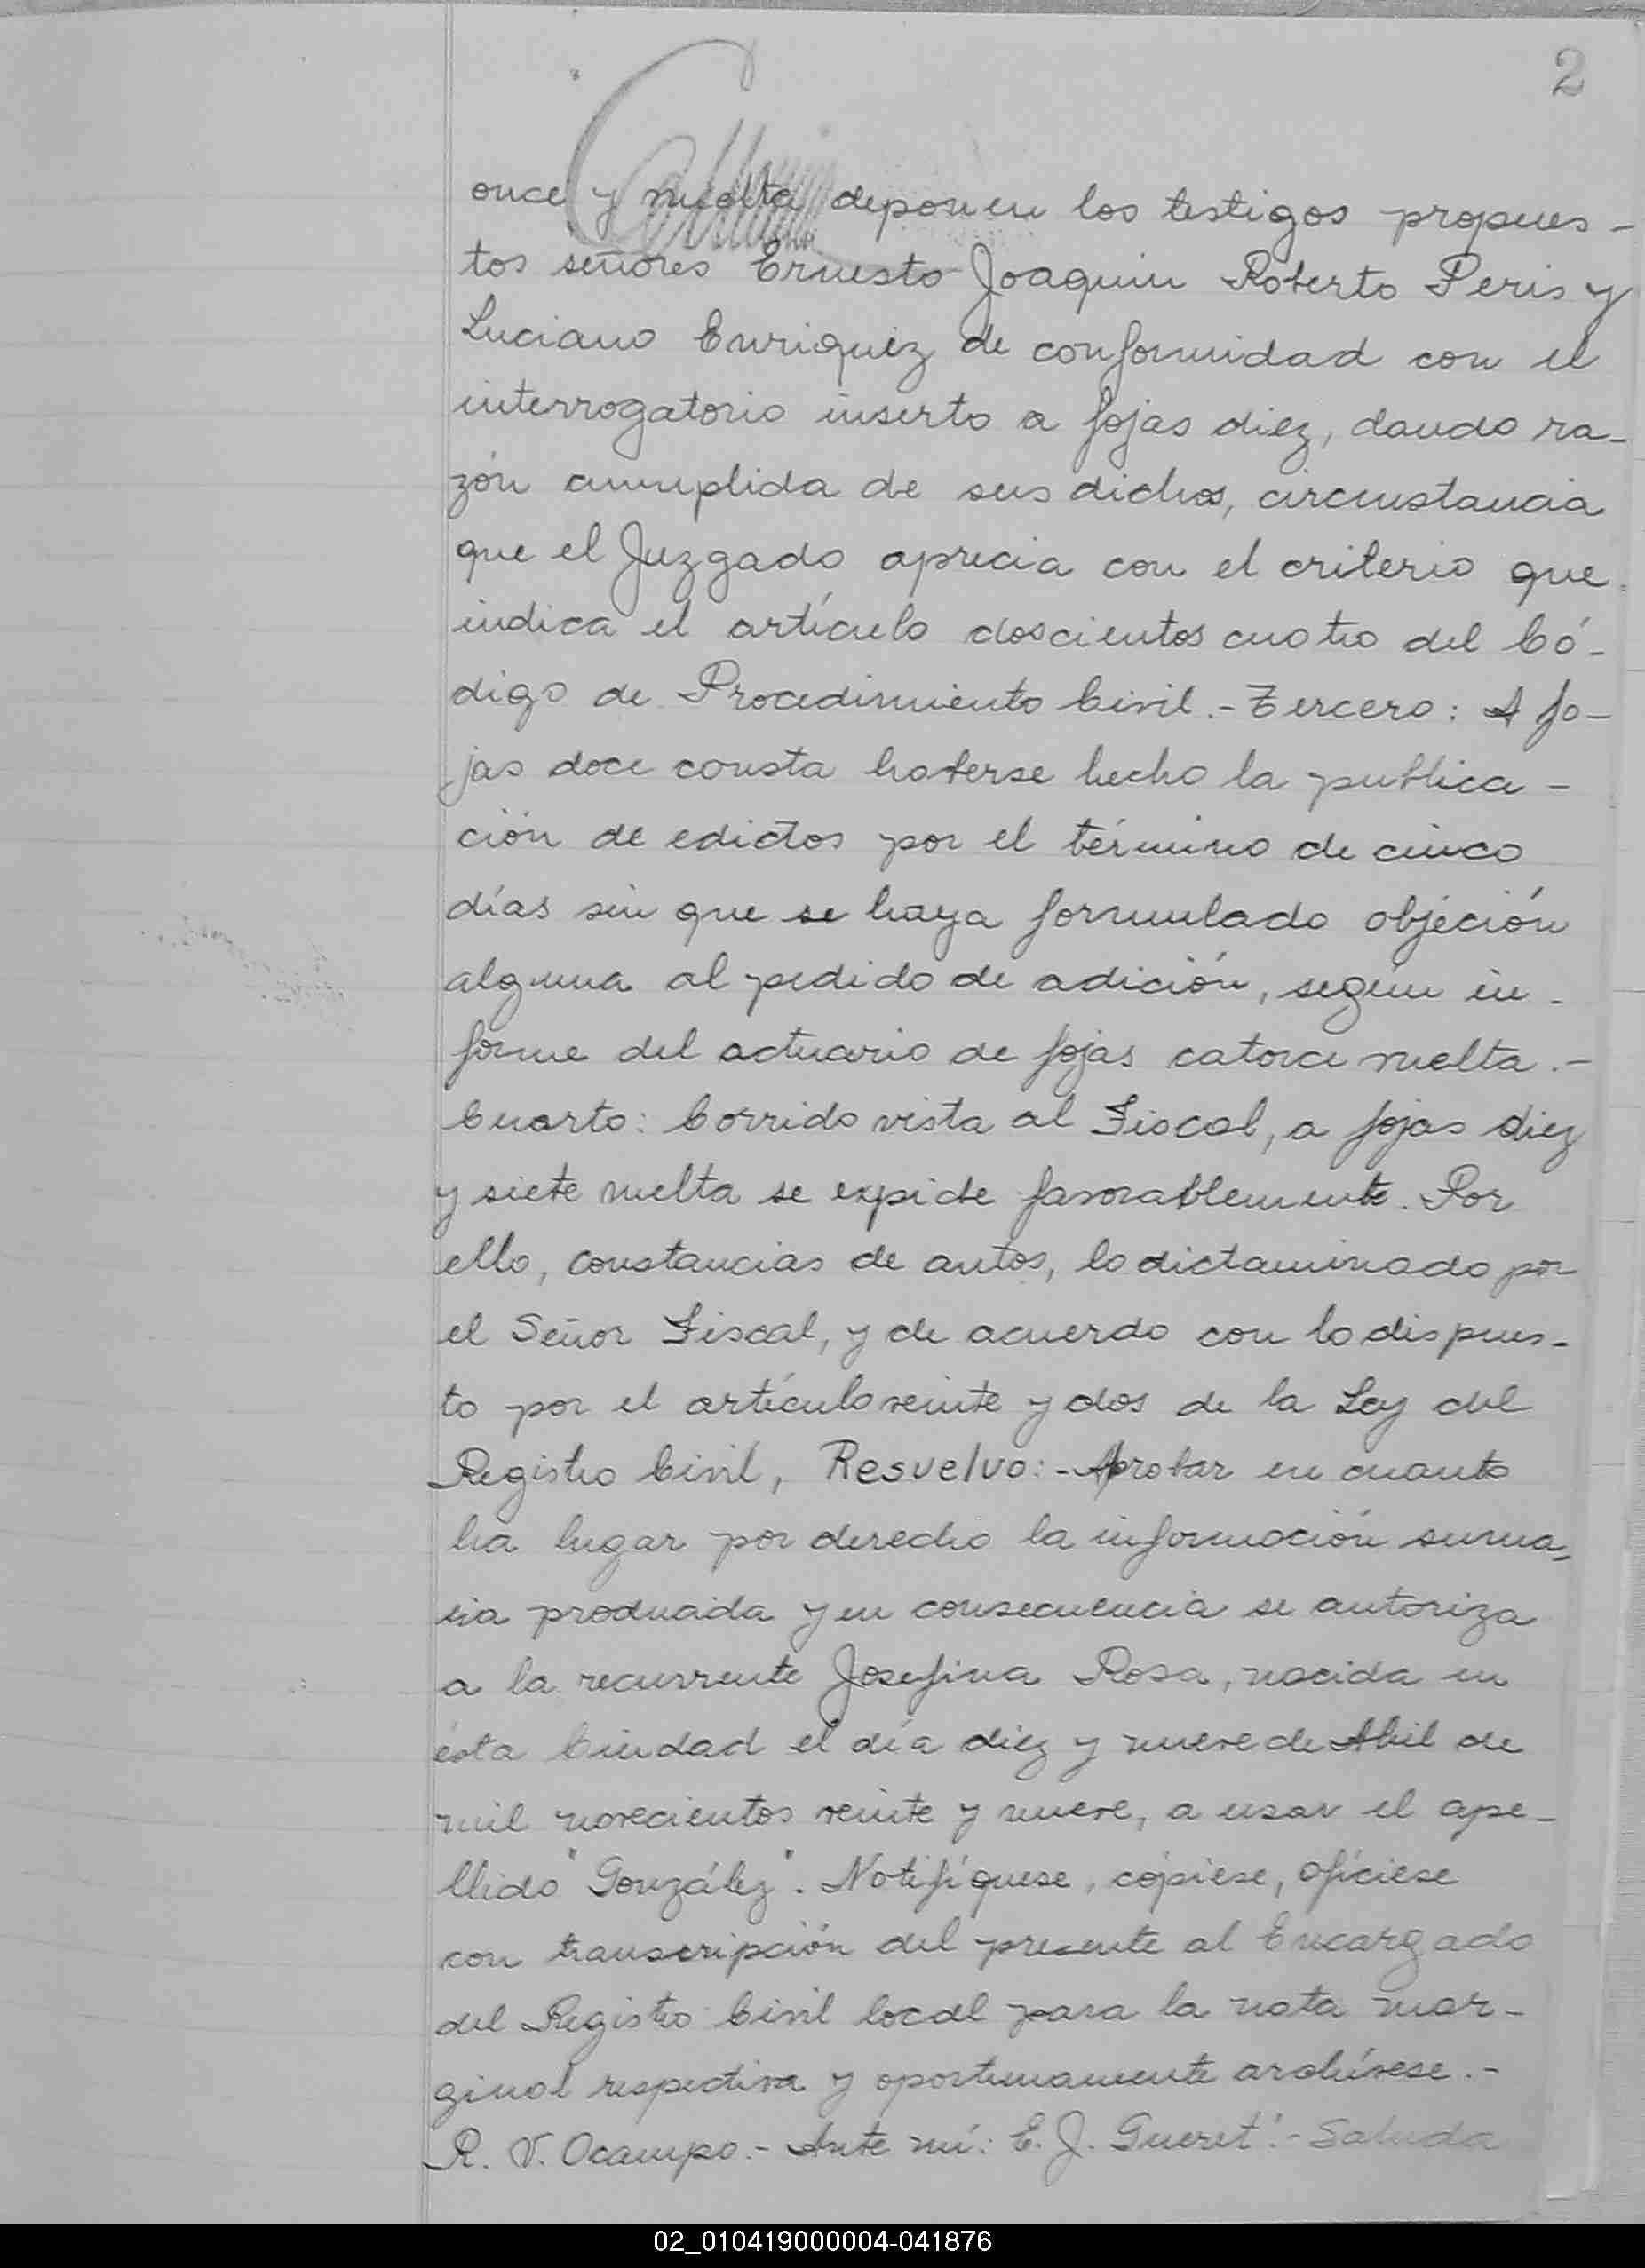 2
once y vuelta deponen los testigos propues-
tos señores Ernesto Joaquin Roberto Peris y
Luciano Enriquez de conformidad con el
interrogatorio inserto a fojas diez, dando ra-
zón cumplida de sus dichos, circunstancia
que el Juzgado aprecia con el criterio que
indica el artículo doscientos cuatro del Có-
digo de Procedimiento Civil.- Tercero: A fo-
jas doce consta haberse hecho la publica-
ción de edictos por el término de cinco
días sin que se haya formulado objeción
alguna al pedido de adición, según in-
forme del actuario de fojas catorce vuelta.-
Cuarto: Corrido vista al Fiscal, a fojas diez
y siete vuelta se expide favorablemente. Por
ello, constancias de autos, lo dictaminado por
el Señor Fiscal, y de acuerdo con lo dispues-
to por el artículo veinte y dos de la Ley del
Registro Civil, Resuelvo:- Aprobar en cuanto
ha lugar por derecho la información suma-
ria producida y en consecuencia se autoriza
a la recurrente Josefina Rosa, nacida en
ésta Ciudad el día diez y nueve de Abril de
mil novecientos veinte y nueve, a usar el ape-
llido "González". Notifíquese, cópiese, ofíciese
con transcripción del presente al Encargado
del Registro Civil local para la nota mar-
ginal respectiva y oportunamente archívese.-
R. V. Ocampo.- Ante mí: E. J. Gueret".- Saluda
02_010419000004-041876